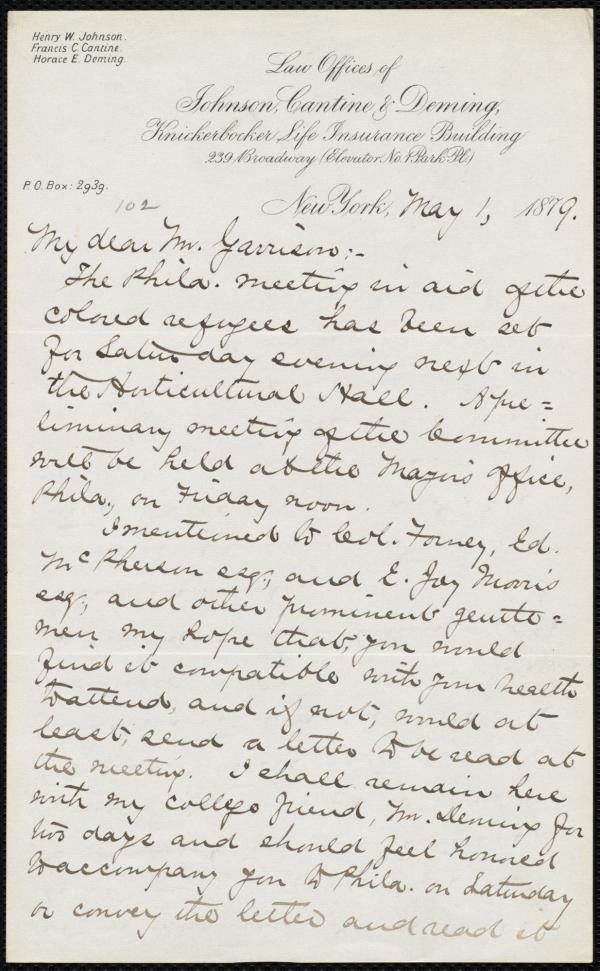 Henry W. Johnson.
Francis C. Cantine.
Horace E. Deming.
Law Offices of
Johnson, Cantine & Deming,
Knickerbocker Life Insurance Building
239 Broadway (Elevator No. 1 Park Pl.)
P.O. Box: 2939.
102
New York, May 1, 1879.
My dear Mr. Garrison:-
The Phila. meeting in aid of the
colored refugees has been set
for Saturday evening next in
the Horticultural Hall. A pre=
liminary meeting of the Committee
will be held at the Mayor's office,
Phila., on Friday noon.
I mentioned to Col. Forney, Ed.
McPherson esq., and E. Joy Morris
esq., and other prominent gentle=
men my hope that you would
find it compatible with your health
to attend, and if not, would at
least, send a letter to be read at
the meeting. I shall remain here
with my college friend, Mr. Deming for
two days and should feel honored
to accompany you to Phila. on Saturday
or convey the letter and read it